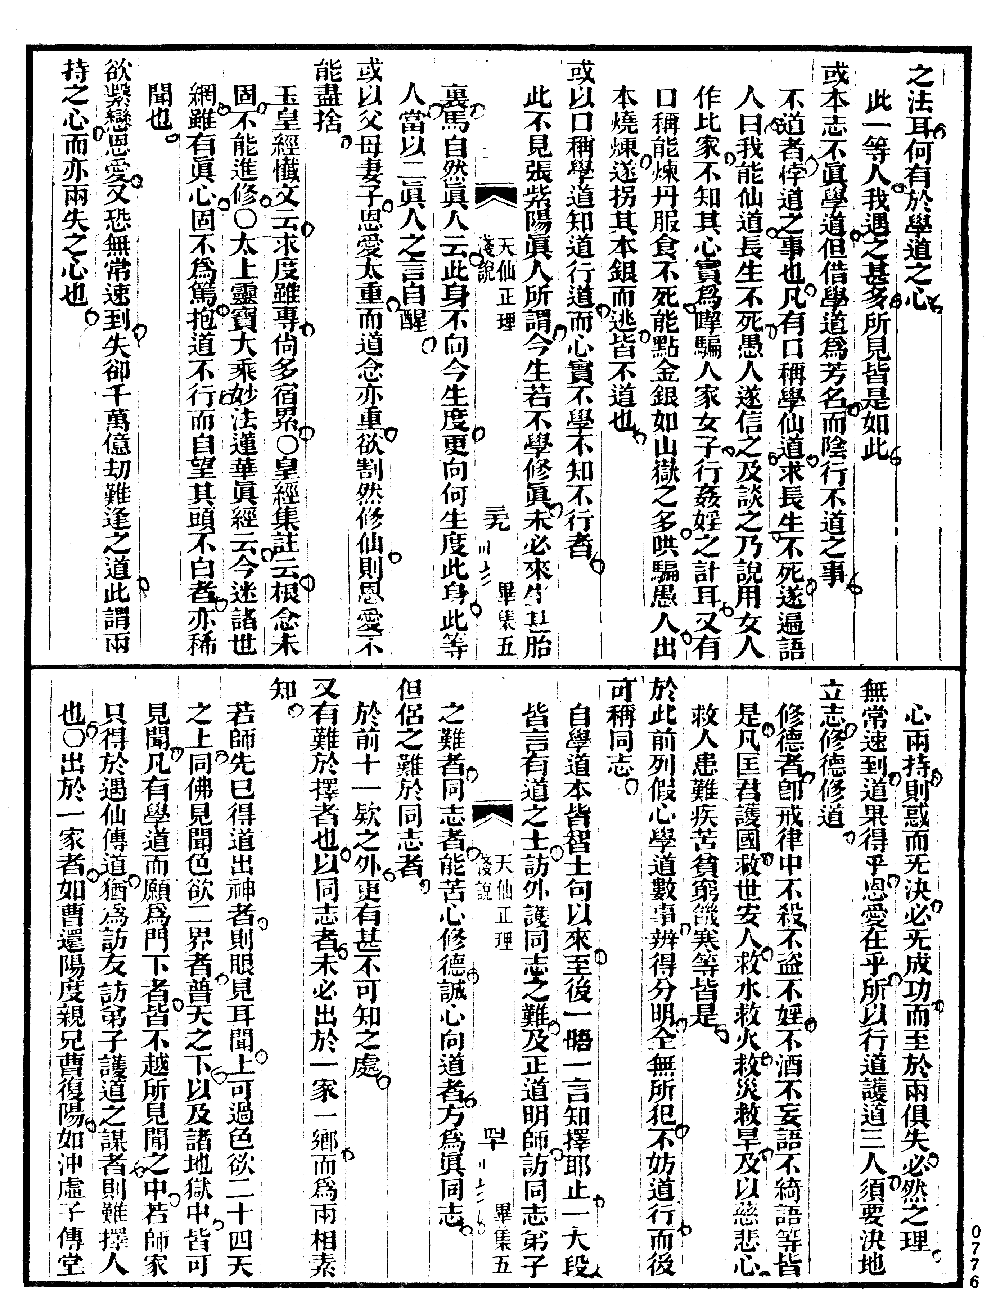 之法耳何有於學道之心
此一等人我遇之甚多所見皆是如此
或本志不眞學道但借學道爲芳名而陰行不道之事
不道者悖道之事也凡有口稱學仙道求長生不死遂遍語
人曰我能仙道長生不死愚人遂信之及談之乃說用女人
作比家不知其心實爲嘽騙人家女子行姦婬之計耳又有
口稱能煉丹服食不死能點金銀如山嶽之多哄騙愚人出
本燒煉遂拐其本銀而逃皆不道也
或以口稱學道知道行道而心實不學不知不行者
此不見張紫陽眞人所謂今生若不學修眞未必來生胎
天仙正理
淺說
畢集五
裏馬自然眞人云此身不向今生度更向何生度此身此等
人當以二眞人之言自醒
或以父母妻子恩愛太重而道念亦重欲割然修仙則恩愛不
能盡捨
玉皇經懺文云求度雖專尙多宿累○皇經集註云根念未
固不能進修○太上靈寶大乘妙法蓮華眞經云今迷諸世
網雖有眞心固不爲篤抱道不行而自望其頭不白者亦稀
聞也
欲縈戀恩愛又恐無常速到失卻千萬億劫難逢之道此謂兩
持之心而亦兩失之心也
心兩持則惑而无決必无成功而至於兩俱失必然之理
無常速到道果得乎恩愛在乎所以行道護道三人須要決地
立志修德修道
修德者卽戒律中不殺不盜不婬不酒不妄語不綺語等皆
是凡匡君護國救世安人救水救火救災救旱及以慈悲心
救人患難疾苦貧窮饑寒等皆是
於此前列假心學道數事辨得分明全無所犯不妨道行而後
可稱同志
自學道本皆智士句以來至後一䁱一言知擇耶止一大段
皆言有道之士訪外護同志之難及正道明師訪同志弟子
天仙正理
淺說
畢集五
之難者同志者能苦心修德誠心向道者方爲眞同志
但侶之難於同志者
於前十一欵之外更有甚不可知之處
又有難於擇者也以同志者未必出於一家一鄉而爲兩相素
知
若師先已得道出神者則眼見耳聞上可過色欲二十四天
之上同佛見聞色欲二界者普天之下以及諸地獄中皆可
見聞凡有學道而願爲門下者皆不越所見聞之中若師家
只得於遇仙傳道猶爲訪友訪弟子護道之謀者則難擇人
也○出於一家者如曹還陽度親兄曹復陽如沖虛子傳堂
0776